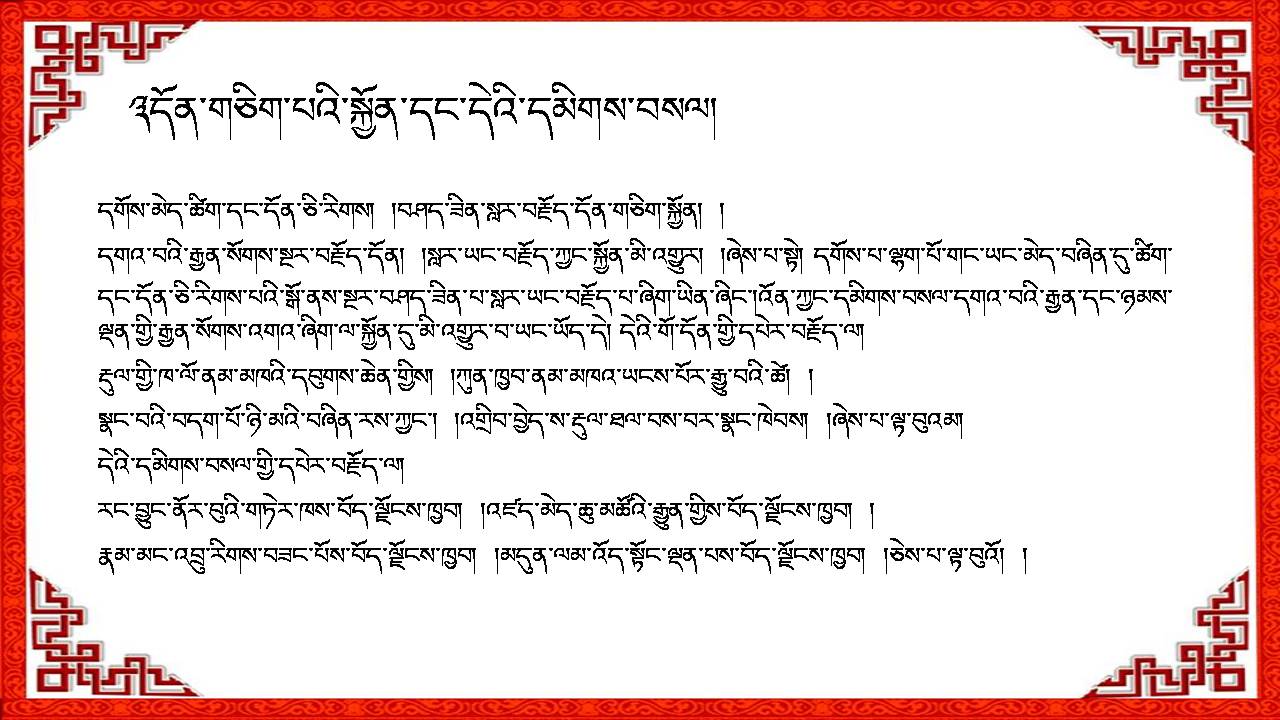 ༢དོན་གཅིག་པའི་སྐྱོན་དང་དེའི་དམིགས་བསལ།
དགོས་མེད་ཚིག་དང་དོན་ཅི་རིགས། །བཤད་ཟིན་སླར་བརྗོད་དོན་གཅིག་སྐྱོན། །
དགའ་བའི་རྒྱན་སོགས་སྔར་བརྗོད་དོན། །སླར་ཡང་བརྗོད་ཀྱང་སྐྱོན་མི་འགྱུར། །ཞེས་པ་སྟེ། དགོས་པ་ལྷག་པོ་གང་ཡང་མེད་བཞིན་དུ་ཚིག་
དང་དོན་ཅི་རིགས་པའི་སྒོ་ནས་སྔར་བཤད་ཟིན་པ་སླར་ཡང་བརྗོད་པ་ཞིག་ཡིན་ཞིང་།འོན་ཀྱང་དམིགས་བསལ་དགའ་བའི་རྒྱན་དང་ཉམས་
ལྡན་གྱི་རྒྱན་སོགས་འགའ་ཞིག་ལ་སྐྱོན་དུ་མི་འགྱུར་བ་ཡང་ཡོད་དེ། དེའི་གོ་དོན་གྱི་དཔེར་བརྗོད་ལ།
རྡུལ་གྱི་ཁ་ལོ་ནམ་མཁའི་དབུགས་ཆེན་གྱིས། །ཀུན་ཁྱབ་ནམ་མཁའ་ཡངས་པོར་རྒྱུ་བའི་ཚེ། །
སྣང་བའི་བདག་པོ་ཉི་མའི་བཞིན་རས་ཀྱང་། །འགྲིབ་བྱེད་ས་རྡུལ་ཐལ་བས་བར་སྣང་ཁེབས། །ཞེས་པ་ལྟ་བུའམ།
དེའི་དམིགས་བསལ་གྱི་དཔེར་བརྗོད་ལ།
རང་བྱུང་ནོར་བུའི་གཏེར་ཁས་བོད་ལྗོངས་ཁྱབ། །འཛད་མེད་ཆུ་མཚོའི་རྒྱུན་གྱིས་བོད་ལྗོངས་ཁྱབ། །
རྣམ་མང་འབྲུ་རིགས་བཟང་པོས་བོད་ལྗོངས་ཁྱབ། །མདུན་ལམ་འོད་སྟོང་ལྡན་པས་བོད་ལྗོངས་ཁྱབ། །ཅེས་པ་ལྟ་བུའོ། །